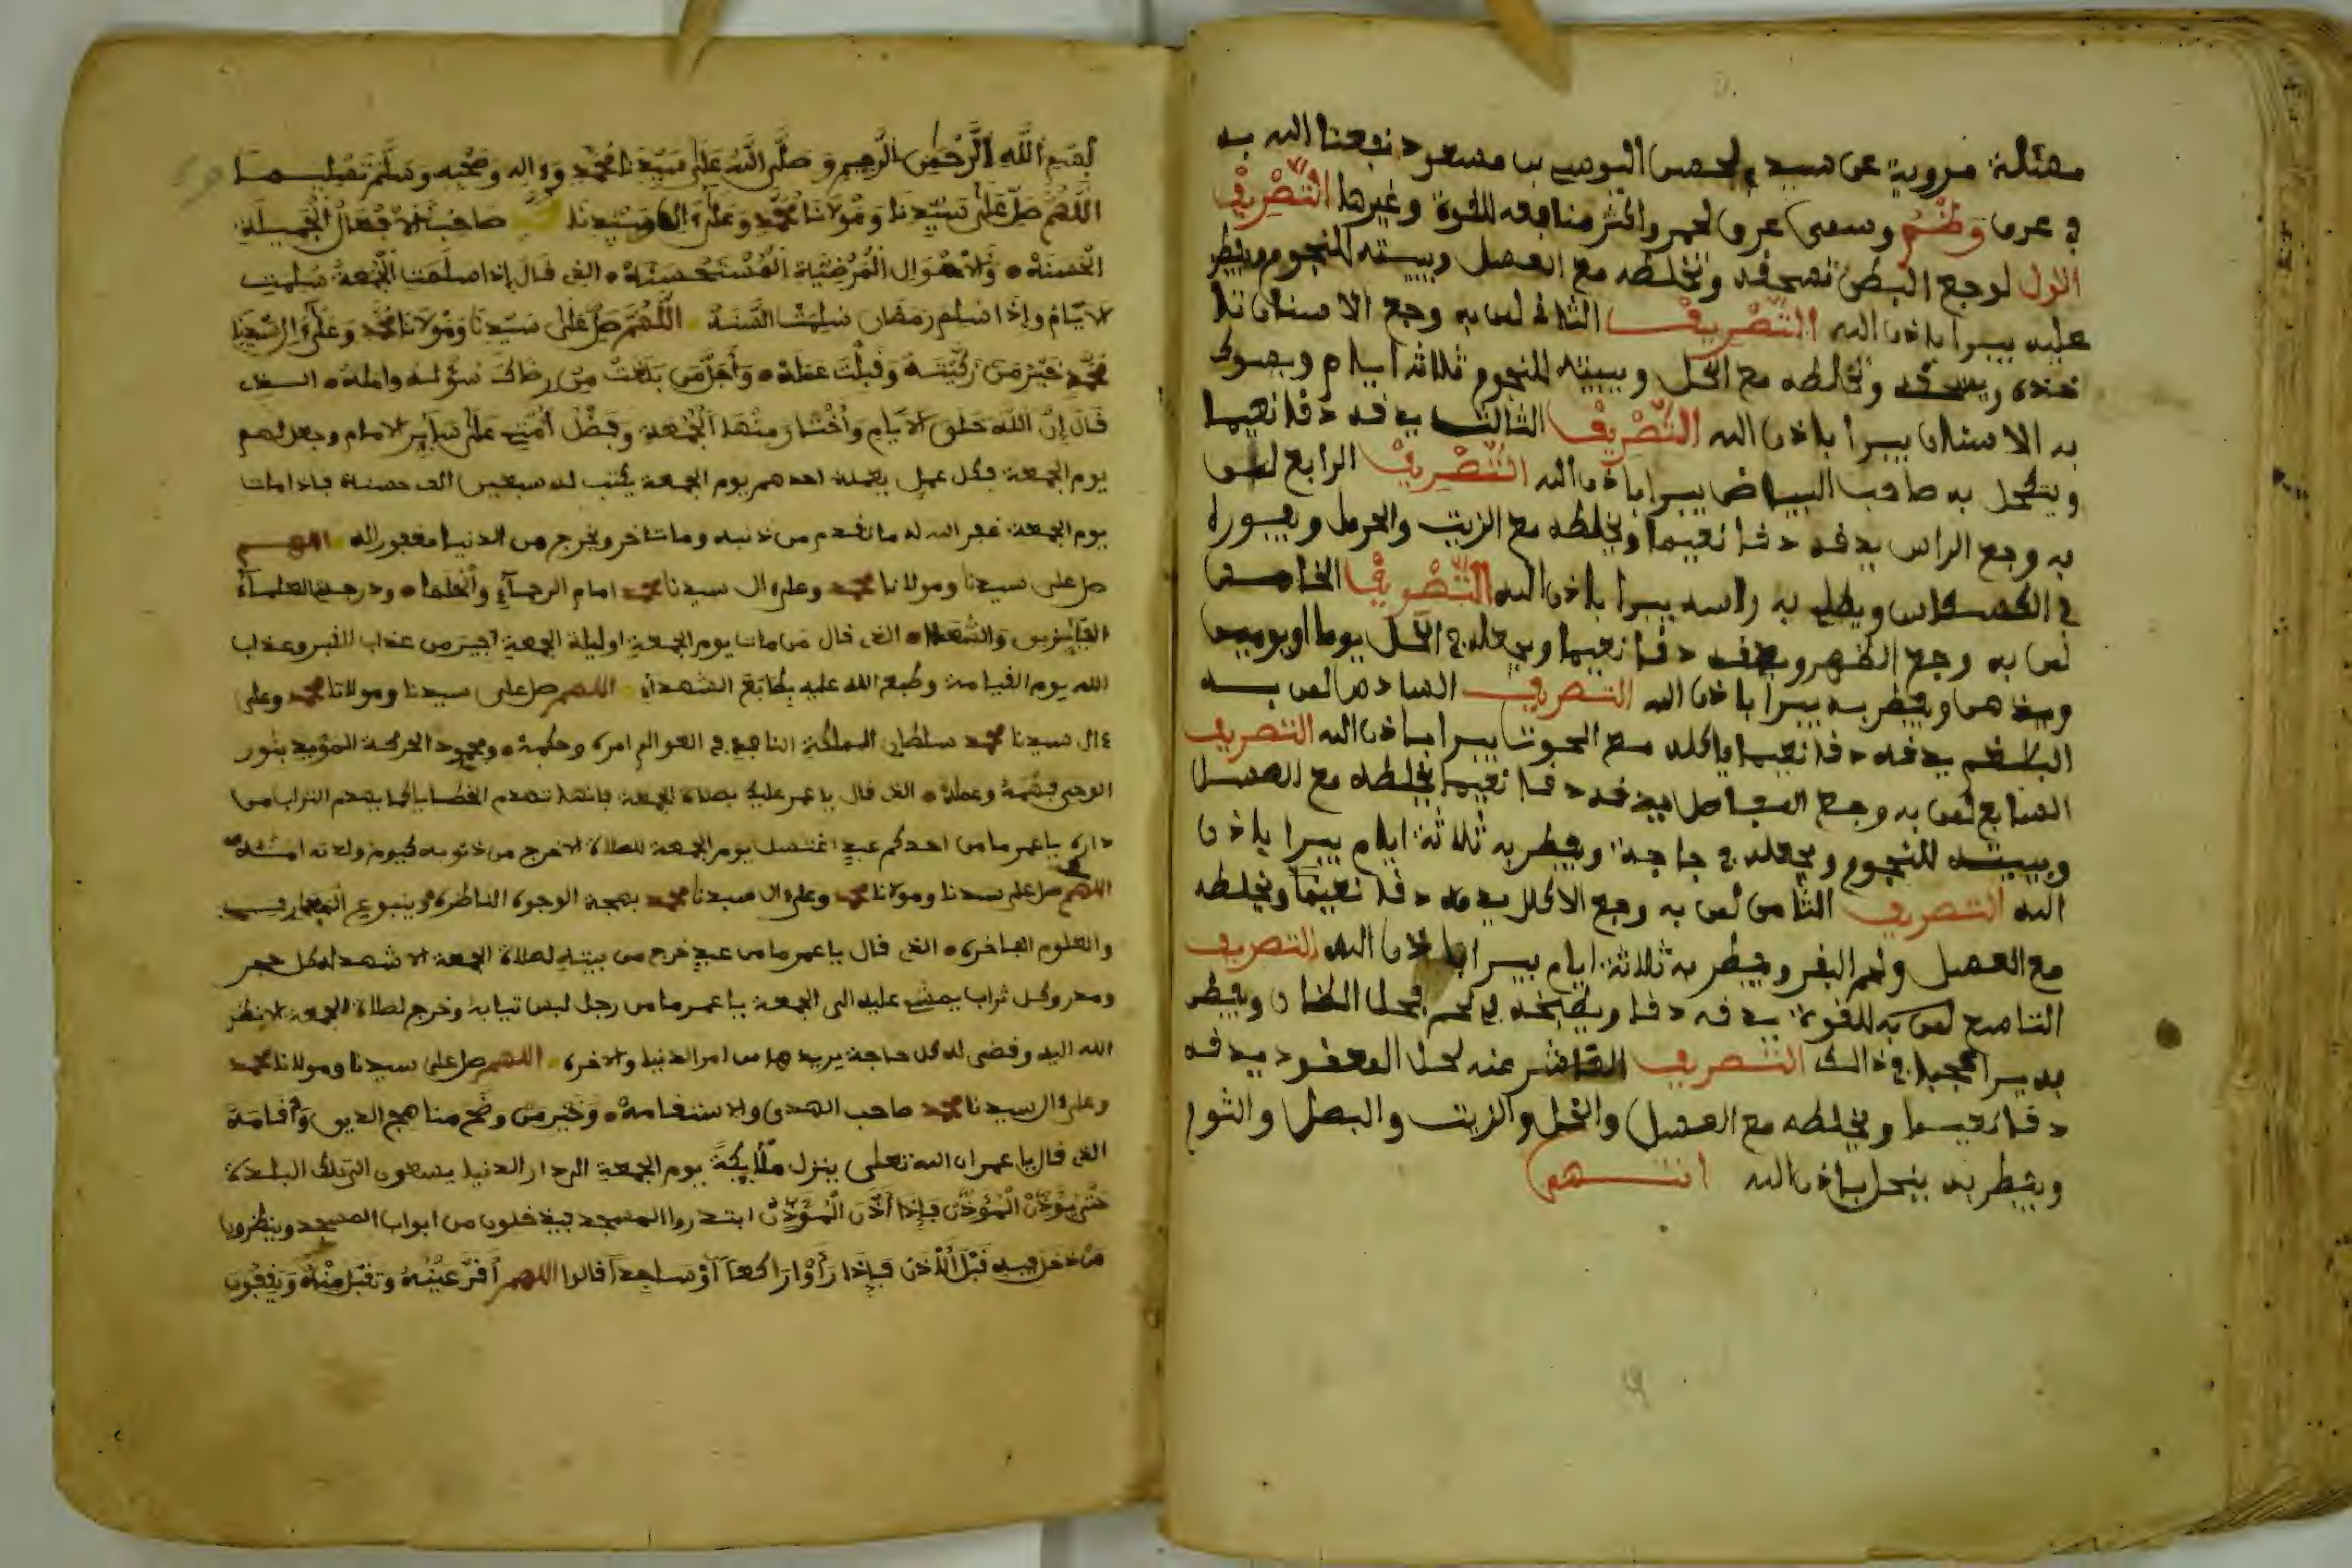 مسئلة مروية عن سيدي لحسن اليوسي بن مسعود نفعنا الله به
في عرف وظنم وسمى عروق لحمر واكثر منافعه للقوة وغيرها التصريف
الاول لوجع البطن تسحقه وتخلطه مع العسل وبيته للنجوم ويفطر
عليه يبرا باذن الله التصريف الثاني لمن به وجع الاسنان
خذه ويسحقه وتخلطه مع الخل ويبيته للنجوم ثلاثة ايام ويسوك
به الاسنان يبرا باذن الله التصريف الثالث يدقه دقا نعيما
ويتكحل به صاحب البياض يبرا باذن الله التصريف الرابع لمن
به وجع الراس يدقه دقا نعيما ويخلطه مع الزيت والحرمل ويبوره
في الكسكاس ويطلي به راسه يبرا باذن الله التصريف الخامس
لمن به وجع الظهر ويدقه دقا نعيما ويجعله في الخل يوما او يومين
ويدهن ويفطر به يبرا باذن الله التصريف السادس لمن به
البلغم يدقه دقا نعيما ياكله مع الحوت يبرا باذن الله التصريف
السابع لمن به وجع المفاصل يدقه دقا نعيما يخلطه مع العسل
ويبيته للنجوم ويجعله في جاجة ويفطر به ثلاثة ايام يبرا باذن
الله التصريف الثامن لمن به وجع الاكلل يدقه دقا نعيما ويخلطه
مع العسل ولحم البقر ويفطر به ثلاثة ايام يبرا باذن الله التصريف
التاسع لمن به للقوة يدقه دقا ويطبخه في لحم فحل الضان ويفطر
به يرا عجبا في ذالك التصريف العاشر عنه لحل المعقود يدقه
دقا نعيما ويخلطه مع العسل والخل والزيت والبصل والثوم
ويفطر به ينحل باذن الله انتهى
بسم الله الرحمن الرحيم وصلى الله على سيدنا محمد وءاله وصحبه وسلم تسليما
اللهم صل على سيدنا ومولانا محمد وعلى ءال سيدنا صاحب الافعال الجميلة
الحسنة والاحوال المرضية المستحسنة الذي قال إذا سلمت الجمعة سلمت
الايام وإذا سلم رمضان سلمت السنة اللهم صل على سيدنا ومولانا محمد وعلى ءال سيدنا
محمد خير من زكيته وقبلت عمله وأجل من بلغت من رضاك سؤله وامله الذي
قال إن الله خلق الايام وأختار منها الجمعة وفضل أمتي على سآير الامام وجعل لهم
يوم الجمعة فكل عمل يعمله احدهم يوم الجمعة يكتب له سبعين الف حسنة فاذا مات
يوم الجمعة غفر الله له ما تقدم من ذنبه وما تاخر ويخرج من الدنيا مغفورا له اللهم
صل على سيدنا ومولانا محمد وعلى ءال سيدنا محمد امام الرحمآء وأتحفها ودرجة العلمآء
الفآيزين والشهدا الذي قال من مات يوم الجمعة او ليلة الجمعة اجير من عذاب القبر وعذاب
الله يوم القيامة وطبع الله عليه بطابع الشهدآء اللهم صل على سيدنا ومولانا محمد وعلى
ءال سيدنا محمد سلطان المملكة النافذ في العوالم امره وحكمه ومحمود الحركة المؤيد بنور
الوحي فهمه وعمله الذي قال يا عمر عليك بصلاة الجمعة فانها تهدم الخطايا كما يهدم التراب من
داره يا عمر ما من احدكم عبد اغتسل يوم الجمعة للصلاة الا خرج من ذنوبه كيوم ولدته امه
اللهم صل على سيدنا ومولانا محمد وعلى ءال سيدنا محمد بهجة الوجوه الناظرة وينبوع المعارف
والعلوم الفاخرة الذي قال يا عمر ما من عبد خرج من بيته لصلاة الجمعة الا شهد له كل حجر
ومدر وكل تراب يمشي عليه الى الجمعة يا عمر ما من رجل لبس ثيابه وخرج لصلاة الجمعة الا نظر
الله اليه وقضى له كل حاجة يريدها من امر الدنيا والاخرة اللهم صل على سيدنا ومولانا محمد
وعلى ءال سيدنا محمد صاحب الهدى والاستقامة وخير من وضح مناهج الدين وأقامه
الذي قال يا عمر ان الله تعلى ينزل ملآيكة يوم الجمعة الى دار الدنيا يسعون الى تلك البلدة
حتى يؤذن المؤذن فإذا أذن المؤذن ابتدروا المسجد فيدخلون من ابواب المسجد وينظرون
من دخل فيه قبل الأذن فإذا رأوا راكعا أو ساجدا قالوا اللهم أقر عينه وتقبل منه ويقفون